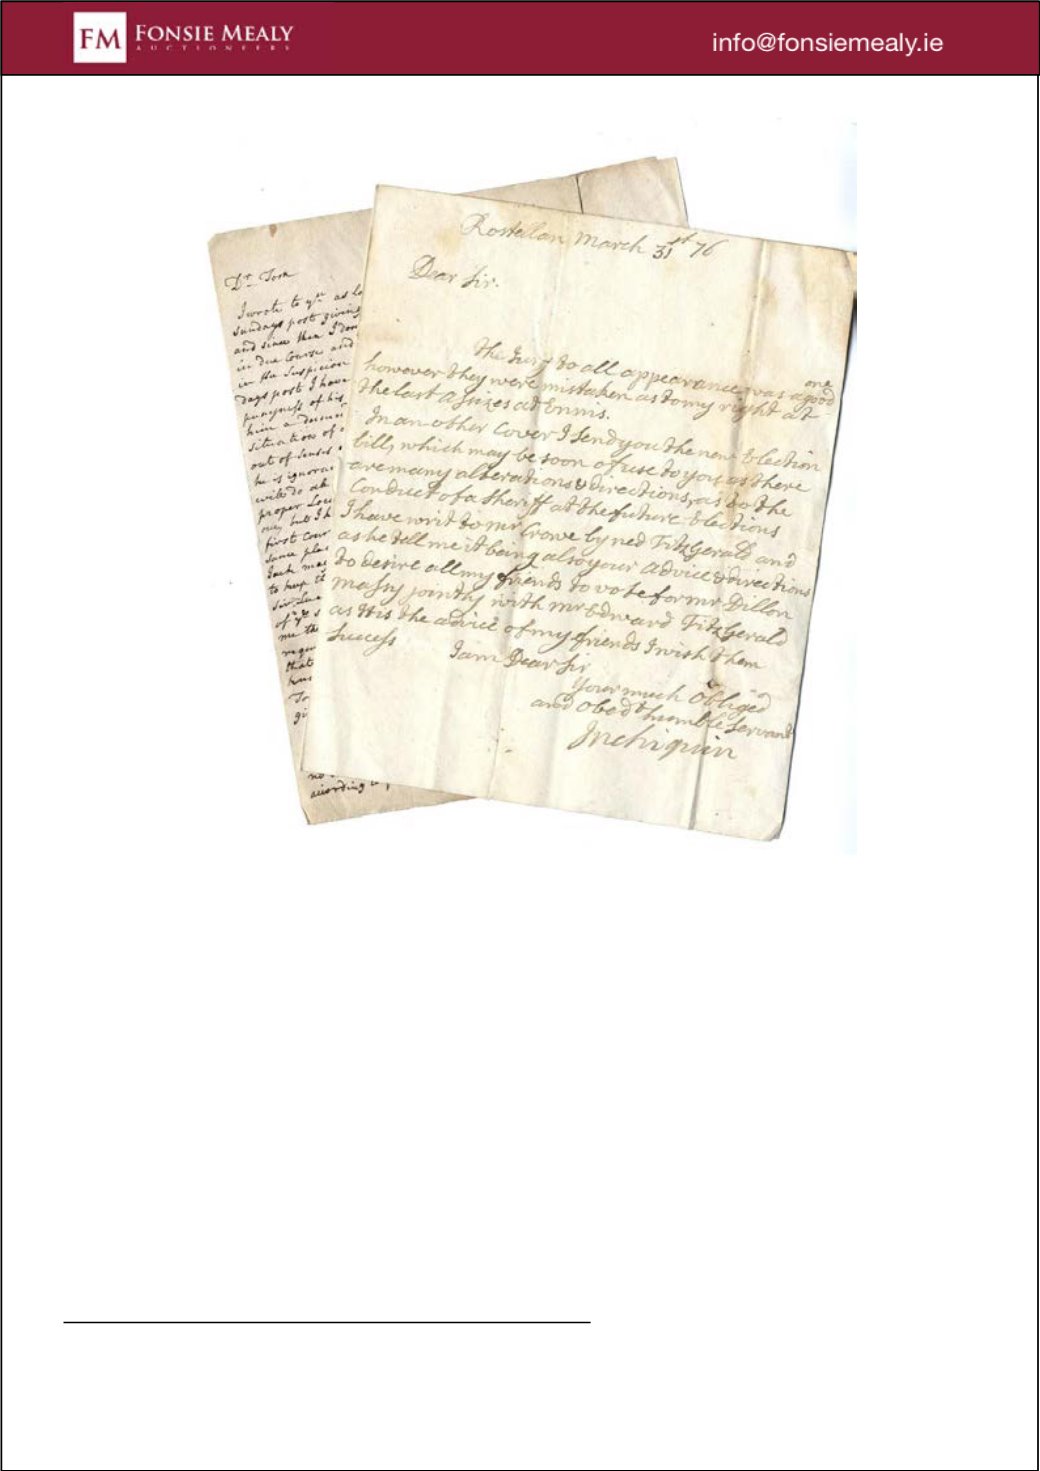 FM FONSIE MEALY
AUCTIONEERS
info@fonsiemealy.ie
Dr Tom
I wrote to yu as
Sundays post giving
and since then I don
in due Course and
in the Suspicion
days post I have
of his
him a
situation of
out of Senses
he is ignoran
will do
proper
but I h
first Cour
Same plac
Each
to keep th
of yr s
me th
that
no
according to
Rostellan March 31st 76
Dear Sir.
The Jury to all appearance was a good one
however they were mistaken as to my right at
the last Assizes at Ennis.
In an other Cover I Send you the new Election
bill, which may be soon of use to you as there
are many alterations & directions, as to the
Conduct of a Sheriff at the future Elections
I have writ to mr Crowe by ned FitzGerald and
as he tell me it being also your advice & directions
to desire all my friends to vote for mr Dillon
massy jointly with mr Edward FitzGerald
as it is the advice of my friends I wish them
Success
I am Dear Sir
Your much Obliged
and obedt humble Servant
Inchiquin